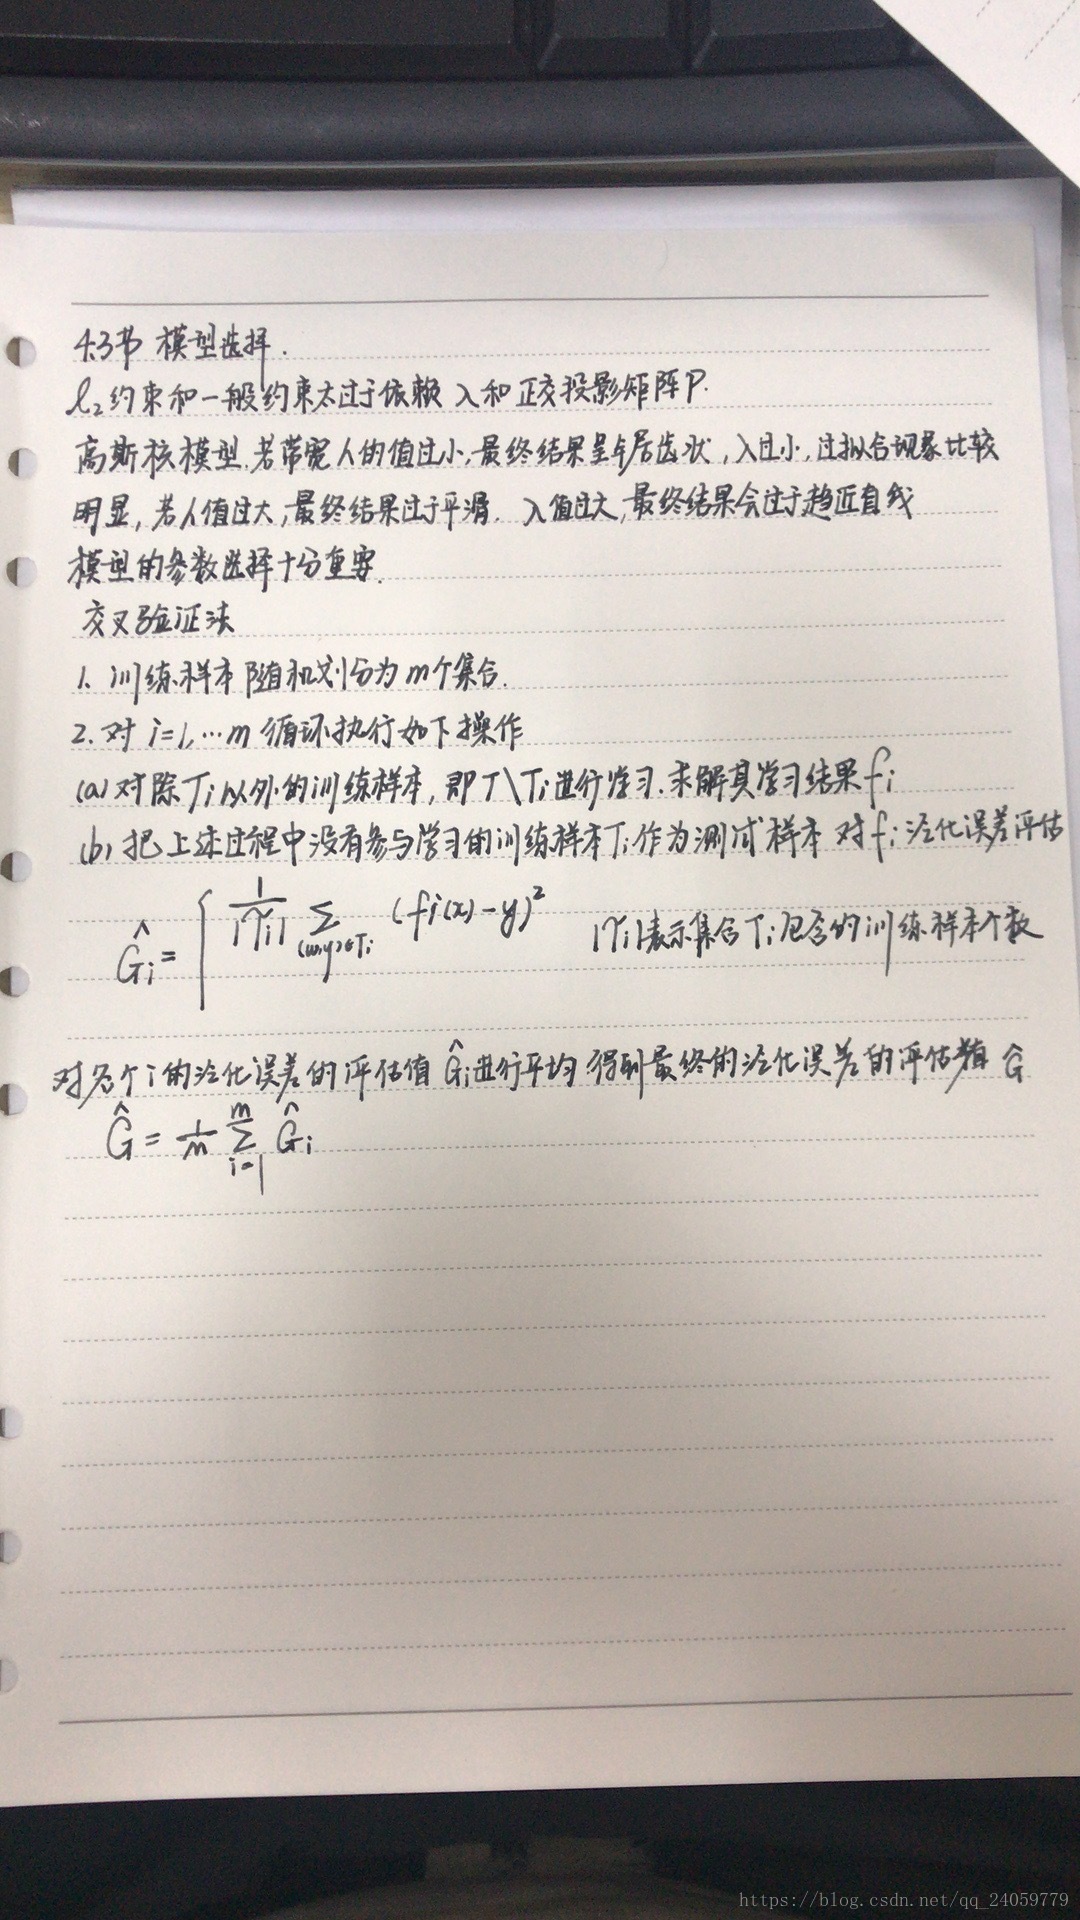 4.3节 模型选择.
ℓ₂约束和一般约束太过于依赖 λ和正交投影矩阵P.
高斯核模型.若带宽h的值过小,最终结果呈锯齿状,λ过小,过拟合现象比较
明显,若h值过大,最终结果过于平滑. λ值过大,最终结果会过于趋近直线
模型的参数选择十分重要.
交叉验证法
1. 训练样本随机划分为m个集合.
2.对 i=1,…m 循环执行如下操作
(a)对除Ti以外的训练样本,即T\Ti进行学习.求解其学习结果fi
(b)把上述过程中没有参与学习的训练样本Ti作为测试样本 对fi泛化误差评估
Ĝi = { 1/|Ti| Σ (x,y)∈Ti (fi(x)-y)² |Ti|表示集合Ti包含的训练样本个数
对各个i的泛化误差的评估值Ĝi进行平均 得到最终的泛化误差的评估值 Ĝ
Ĝ = 1/m Σ i=1 m Ĝi
https://blog.csdn.net/qq_24059779